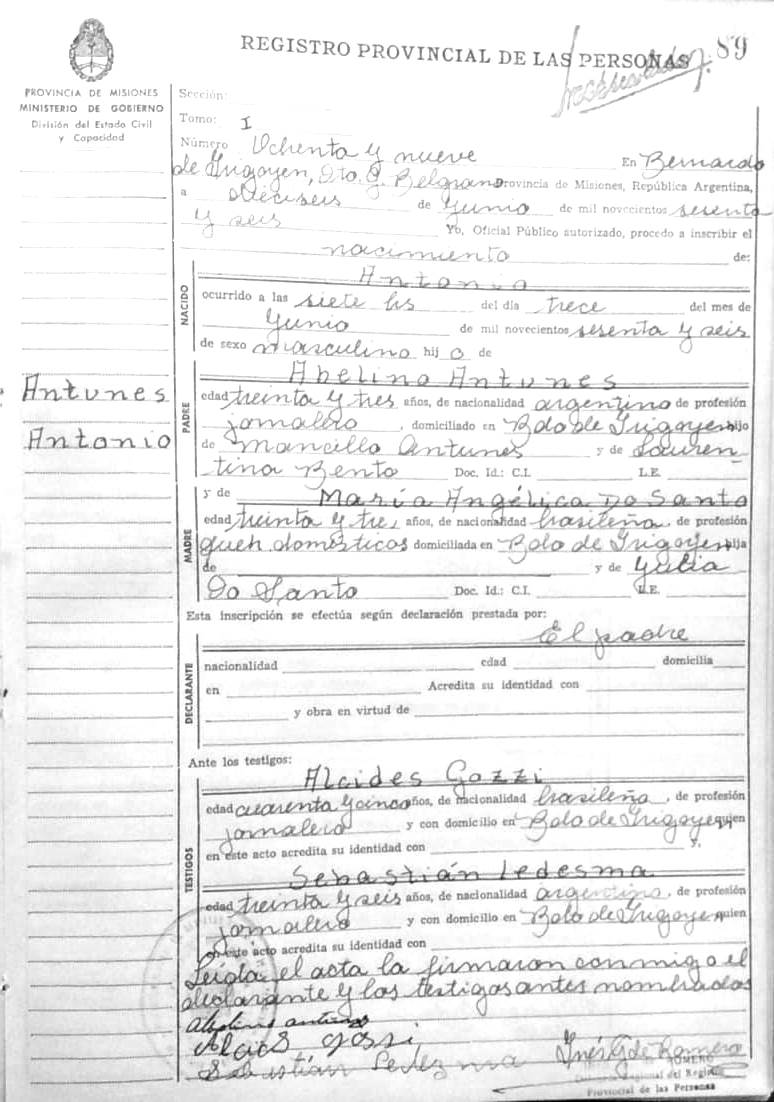 REGISTRO PROVINCIAL DE LAS PERSONAS 89
PROVINCIA DE MISIONES
MINISTERIO DE GOBIERNO
División del Estado Civil
y Capacidad
Sección:
Tomo: I
Número Ochenta y nueve En Bernardo
de Irigoyen, Dto. G. Belgrano Provincia de Misiones, República Argentina,
a Dieciseis de Yunio de mil novecientos sesenta
y seis Yo, Oficial Público autorizado, procedo a inscribir el
nacimiento de:
NACIDO
Antonio
ocurrido a las siete hs del día trece del mes de
Yunio de mil novecientos sesenta y seis
de sexo masculino hij o de
Antunes
Antonio
PADRE
Abelino Antunes
edad treinta y tres años, de nacionalidad argentino de profesión
jornalero, domiciliado en Bdo de Irigoyen hijo
de Marcillo Antunes y de Lauren
tina Bento Doc. Id.: C.I. L.E.
MADRE
y de María Angélica Do Santo
edad treinta y tres años, de nacionalidad brasileña, de profesión
queh. domésticos domiciliada en Bdo de Irigoyen hija
de y de Yulia
Do Santo Doc. Id.: C.I. L.E.
Esta inscripción se efectúa según declaración prestada por:
El padre
DECLARANTE
nacionalidad edad domicilia
en Acredita su identidad con
y obra en virtud de
Ante los testigos:
TESTIGOS
Alcides Gozzi
edad cuarenta y cinco años, de nacionalidad brasileña, de profesión
jornalero y con domicilio en Bdo de Irigoyen quien
en este acto acredita su identidad con y,
Sebastián Ledesma
edad treinta y seis años, de nacionalidad argentino, de profesión
jornalero y con domicilio en Bdo de Irigoyen quien
en este acto acredita su identidad con
Leída el acta la firmaron conmigo el
declarante y los testigos antes nombrados
abelino antunes
Alcids gossi
Sebastián Ledezma Inés G de Romero
ROMERO
del Registro
Provincial de las Personas